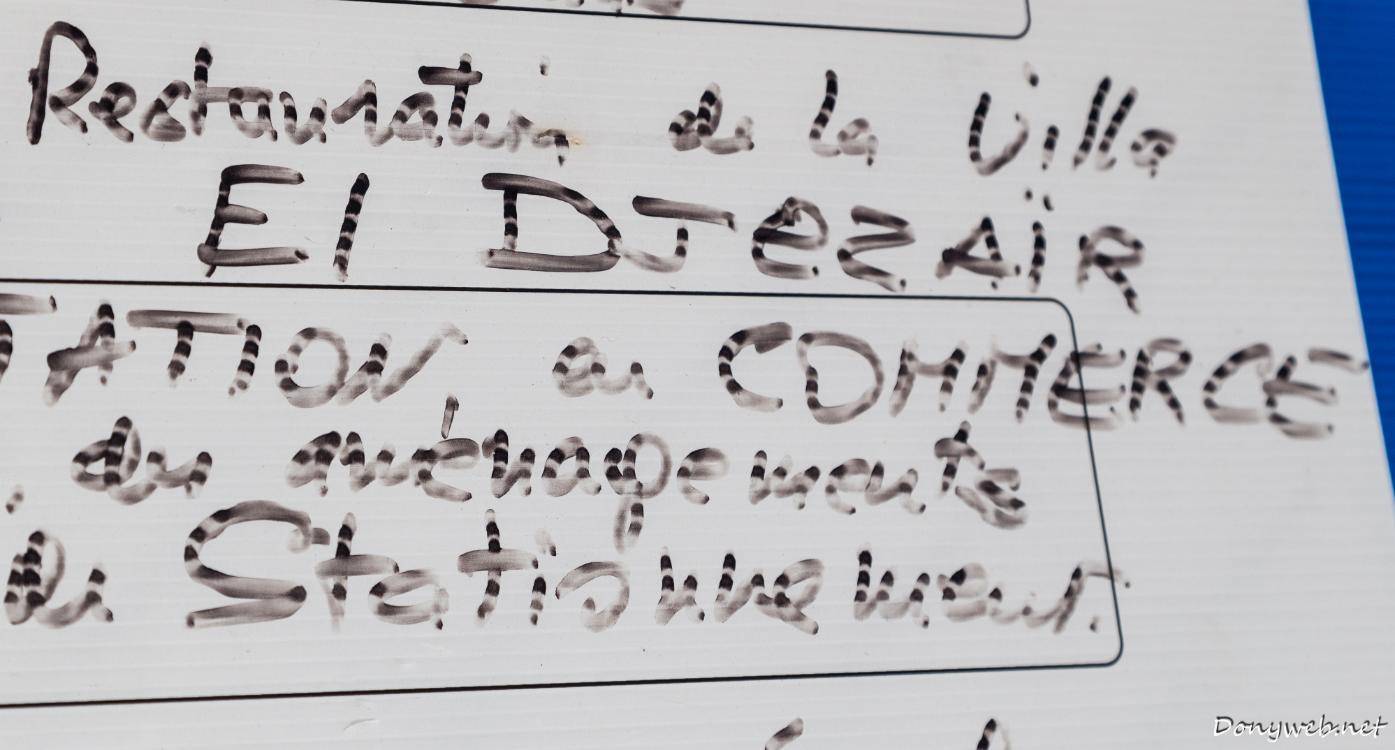 Restauration de la Villa
El DJeZAiR
TATION, en COMMERCE
, des aménagements
de Stationnement.
Donyweb.net